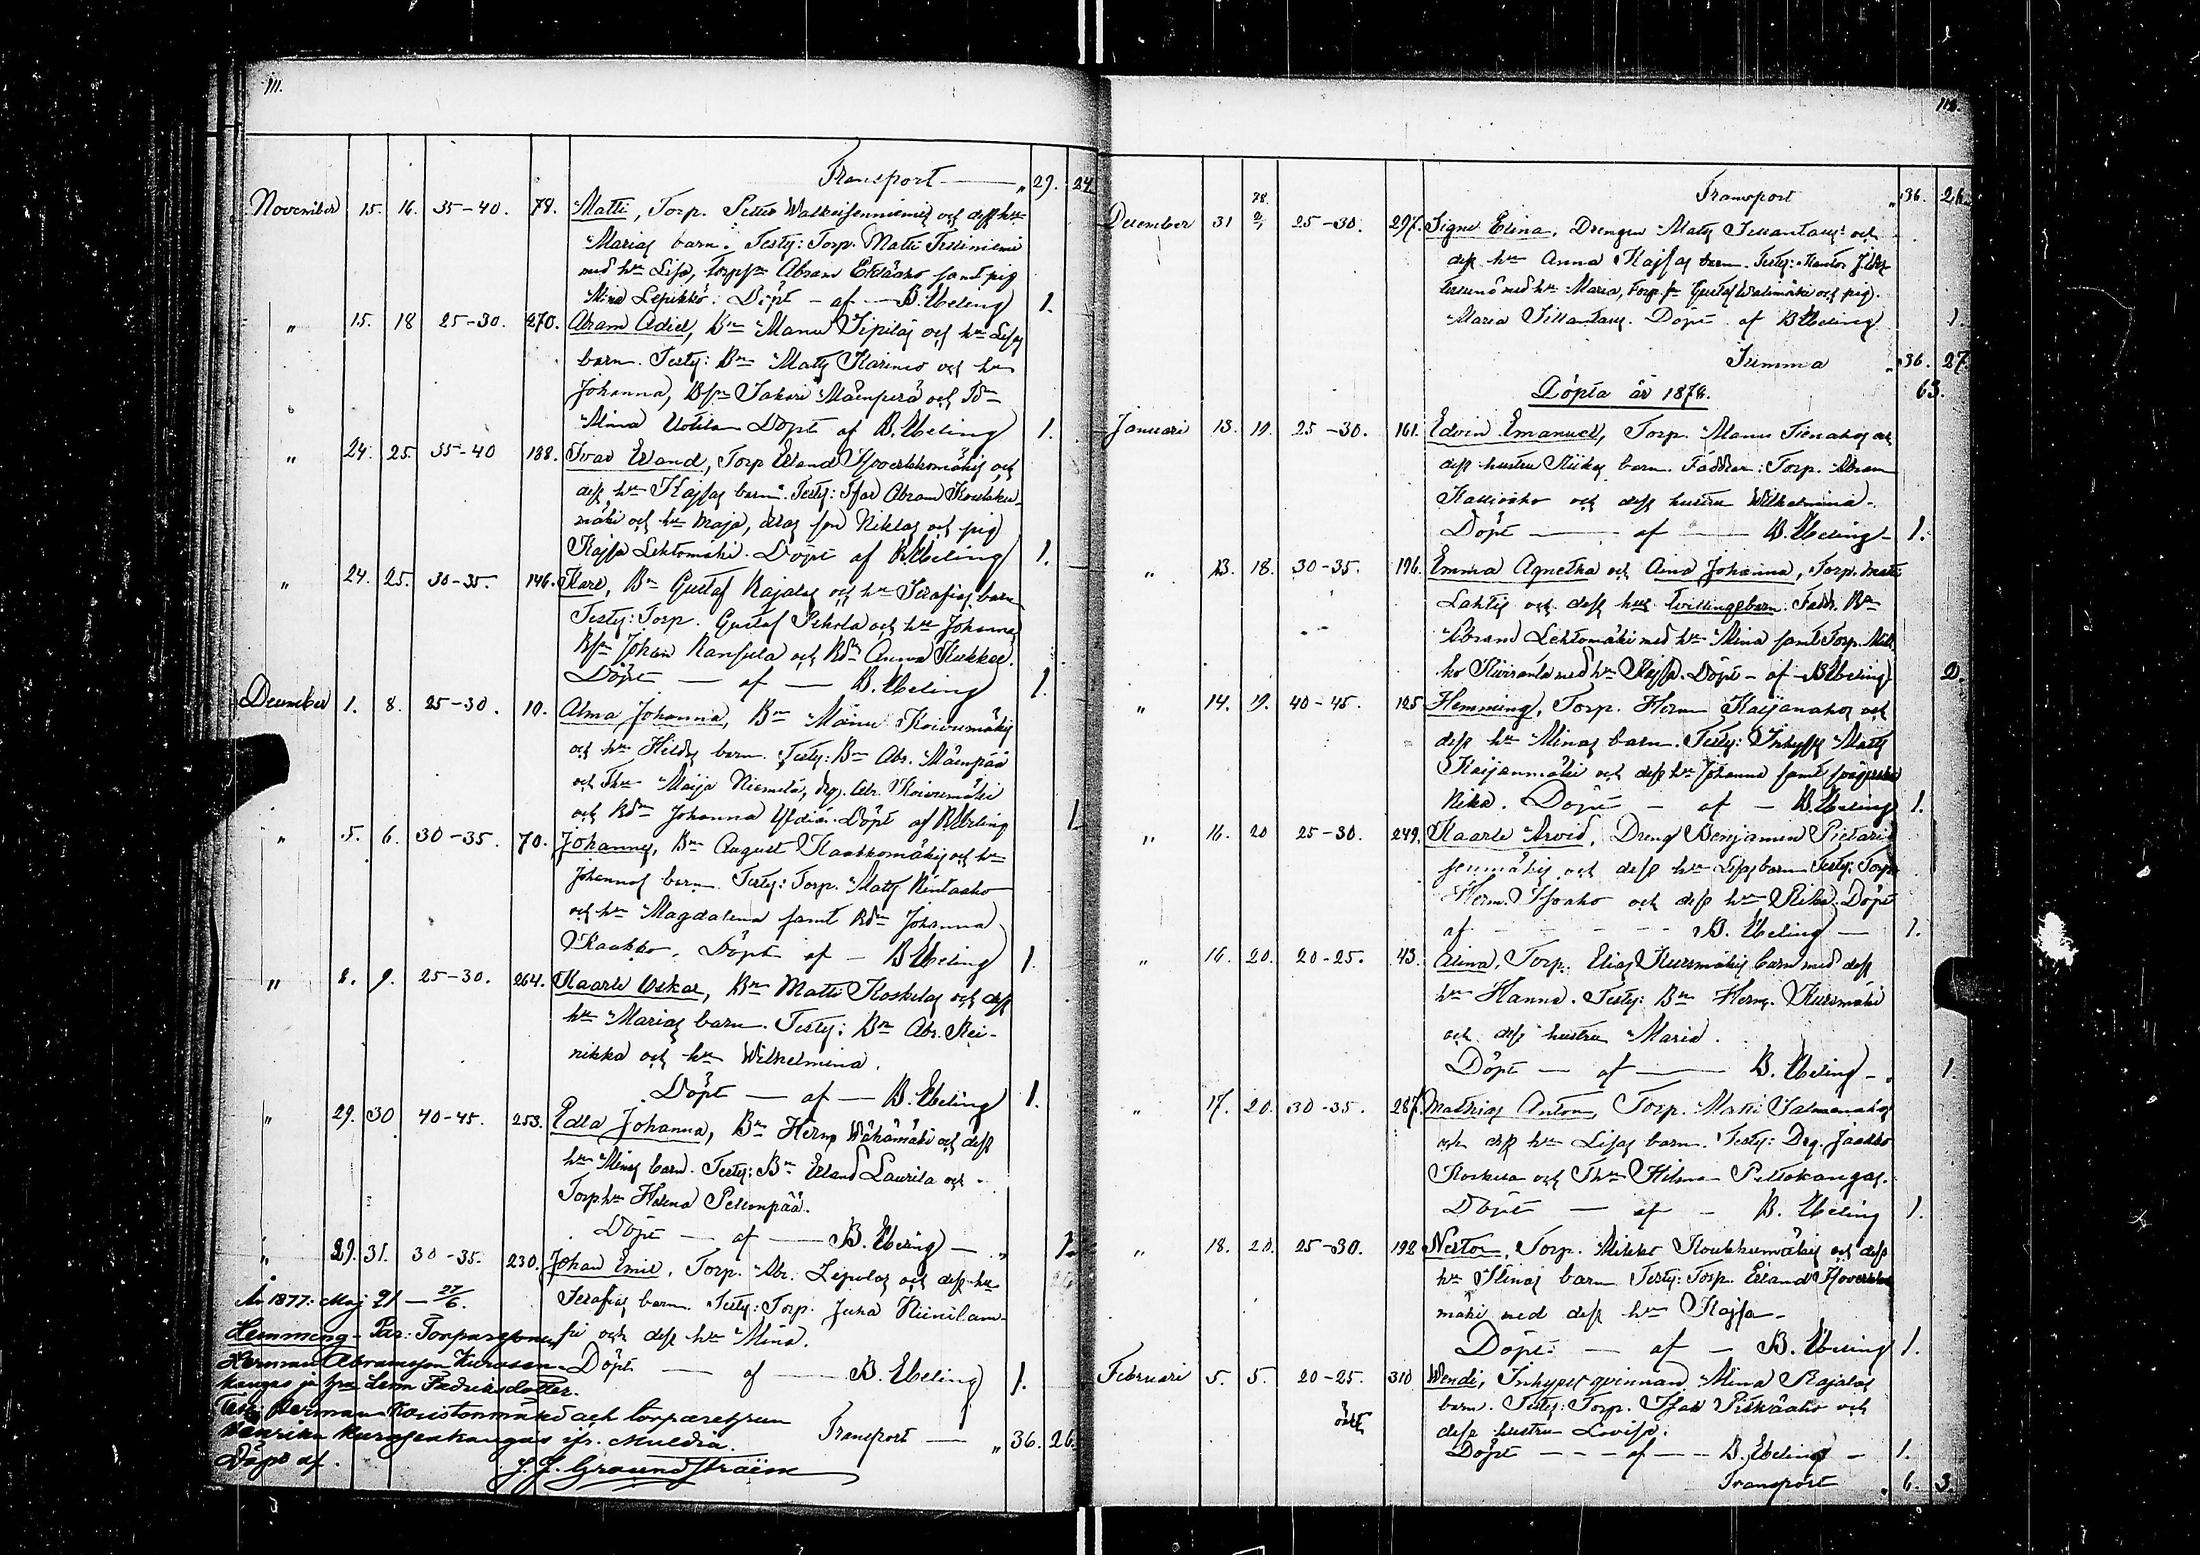 111.
Transport — „ 29. 24
November 15. 16. 35-40. 78. Matti, Torp. Petter och dess hru
Marias barn. Testes: Torp. Matti
med hru Lisa, Abram samt pig
Mina Lepikkö. Döpt - af - B. Ebeling 1.
„ 15. 18 25-30. 270. Abram Adiel, Bn Manu Sipiläs och hru Lisas
barn. Testes: Bn Matts Karimo och hru
Johanna, Bsn Sakari Mäenperä och
Mina Uotila Döpt af B. Ebeling 1.
„ 24. 25. 35-40 188. Ivar Erland, Torp Erland och
dess hru Kajsas barn. Testes: Abram
mäki och hru Maja, son Niklas och pig
Kajsa Lehtomäki. Döpt af B. Ebeling 1.
„ 24. 25. 30-35. 146. Karl, Bn Gustaf Rajalas och hru Serafias barn
Testes: Torp. Gustaf Pehola och hru Johanna
Bsn Johan och Bdr Anna Kukkas.
Döpt — af — B. Ebeling 1.
December 1. 8. 25-30. 10. Alma Johanna, Bn Manu Koivumäkis
och hru Hildas barn. Testes: Bn Abr. Mäenpää
och Maija Niemelä, drg. Abr. Koivumäki
och Bdr Johanna Döpt af B Ebeling 1.
„ 5. 6. 30-35. 70. Johannes, Bn August Kaakkomäkis och hru
Johannas barn. Testes: Torp. Matts Rintaaho
och hru Magdalena samt Bdr Johanna
Kaakko. Döpt af — B Ebeling 1.
„ 8. 9. 25-30. 264. Kaarle Oskar, Bn Matti Koskelas och dess
hru Marias barn. Testes: Bn Abr. Rei-
nikka och hru Wilhelmina.
Döpt — af — B. Ebeling 1.
„ 29. 30 40-45. 253. Edla Johanna, Bn Herm. Wähämäki och dess
hru Minas barn. Testes: Bn Erland Laurila och
Torp hru Helena
Döpt — af — B. Ebeling — „ 1.
„ 29. 31. 30-35. 230. Johan Emil, Torp. Abr. Lepolas och dess hru
Serafias barn. Testes: Torp. Juha Niinilam-
pi och dess hru Mina.
Döpt — af — B. Ebeling 1.
År 1877: Maj 21 — 27/6.
Hemming - Par: Torparesonen
Herman Abramsson Kurosen-
kangas ja hru Lena Fredriksdotter.
Test: Herman Koivistonmäki och torparehrun
Henrika Kurosenkangas ifr. Muldia.
Döpt af. J. J. Grounstroëm
Transport — „ 36. 26.
Transport „ 36. 26.
December 31 78. 2/1 25-30. 297. Signe Elina, Drengen Matts och
dess hru Anna Kajsas barn. Testes: Kantor
med hru Maria, Torp. sn Gustaf Walimäki och pig.
Maria Döpt af B Ebeling 1.
Summa „ 36. 27.
Döpta år 1878. 63.
Januari 13. 19. 25-30. 161. Edvin Emanuel, Torp. Manu Tienahos och
dess hustru barn. Faddrar: Torp. Abram
Kallioaho och dess hustru Wilhelmina.
Döpt — af — B. Ebeling - 1.
„ 13. 18. 30-35. 196. Emma Agnetha och Aina Johanna, Torp. Matti
Lahtis och dess hrus tvillingsbarn. Fadd. Bn
Abram Lehtomäki med hru Mina samt Torp. Mik-
ko med hru Kajsa. Döpt - af - B Ebeling 2.
„ 14. 19. 40-45. 125 Hemming, Torp. Herm Kaijanahos och
dess hru Minas barn. Testes: Inhyses Matts
Kaijanmäki och dess hru Johanna samt
Rika. Döpt - af - B. Ebeling 1.
„ 16. 20 25-30. 249. Kaarle Arvid, Dreng Benjamin Pietari-
senmäkis och dess hru Lisas barn Testes: Torp.
Herm. och dess hru Rika. Döpt
af - - - - - B. Ebeling — 1.
„ 16. 20. 20-25. 43. Alina, Torp. Elias Kursmäkis barn med dess
hru Hanna. Testes: Bn Herm. Kursmäki
och dess hustru Maria.
Döpt — af — B. Ebeling - „ 1.
„ 17. 20. 30-35. 287. Mathias Anton, Torp. Matti Salmenahos
och dess hru Lisas barn. Testes: Drg. Jaakko
Koskela och Hilma Peltokangas.
Döpt — af - B. Ebeling 1.
„ 18. 20. 25-30. 192 Nestor, Torp. Mikko Koukkumäkis och dess
hru Stinas barn Testes: Torp. Erland
mäki med dess hru Kajsa.
Döpt: — af — B. Ebeling 1.
Februari 5. 5. 20-25. 310 Wendi, Inhyses qvinnan Mina Rajalas
oäkt barn. Testes: Torp. Isak Pitkäaho och
dess hustru Lovisa.
Döpt - - - af - - - B. Ebeling - 1.
Transport „ 6. 3.